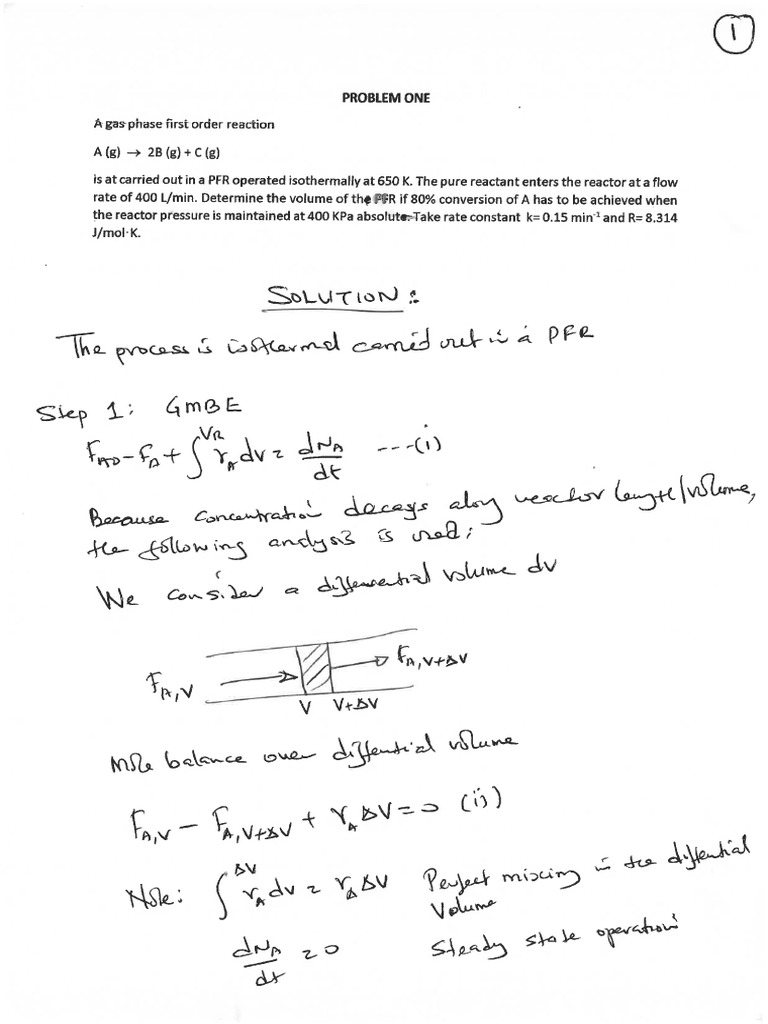 1
PROBLEM ONE
A gas phase first order reaction
A (g) → 2B (g) + C (g)
is at carried out in a PFR operated isothermally at 650 K. The pure reactant enters the reactor at a flow
rate of 400 L/min. Determine the volume of the PFR if 80% conversion of A has to be achieved when
the reactor pressure is maintained at 400 KPa absolute. Take rate constant k= 0.15 min⁻¹ and R= 8.314
J/mol·K.
SOLUTION:
The process is isothermal carried out in a PFR
Step 1: GMBE
F_AO - F_A + ∫^VR r_A dv = dN_A/dt ---(i)
Because concentration decays along reactor length/volume,
the following analysis is used;
We consider a differential volume dv
F_A,V F_A,V+ΔV
V V+ΔV
Mole balance over differential volume
F_A,V - F_A,V+ΔV + r_A ΔV = 0 (ii)
Note: ∫^ΔV r_A dv = r_A ΔV Perfect mixing in the differential
Volume
dN_A/dt = 0 Steady state operation